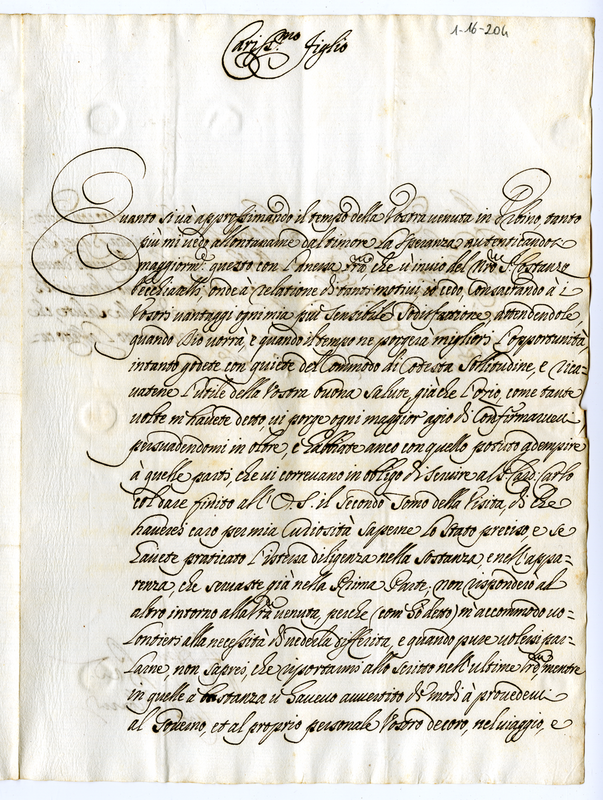 1-16-204
Cariss.mo figlio
Quanto si và approssimando il tempo della Vostra venuta in Urbino tanto
più mi vedo allontanare dal timore la Speranza autenticandosi
maggiorm.te questo con l'anessa che v'invio del Nro S.r Costanzo
onde à relatione di tanti motivi, vi cedo, consacrando à i
Vostri vantaggi ogni mia più sensibile Sodisfazione attendendole
quando Dio vorrà, e quando il tempo ne porgerà migliori l'opportunità,
intanto godete con quiete del Commodo di Cotesta Sollitudine, e rica-
vatene l'utile della Vostra buona Salute, già che l'ozio, come tante
volte m'havete detto, vi porge ogni maggior agio di Confirmarvevi
persuadendomi in oltre, c'habbiate anco con quello potuto adempire
à quelle parti che vi correvano in obligo di servire al Carlo
col dare finito all' il Secondo Tomo della Visita, di che
haverei caro per mia Curiosità saperne lo stato preciso, e se
havete praticato l'istessa diligenza nella Sostanza, e nell'appa-
renza, che servaste già nella Prima Parte; non risponderò al
altro intorno alla Vra venuta, perche (com'hò detto) m'accommodo vo-
lontieri alla necessità di vederla differita, e quando pure volessi par-
larne, non saprei, che riportarmi allo scritto nell'ultime mentre
in quelle a bastanza v'havevo avvertito de modi à provedervi
al Governo, et al proprio personale Vostro decoro, nel viaggio, e